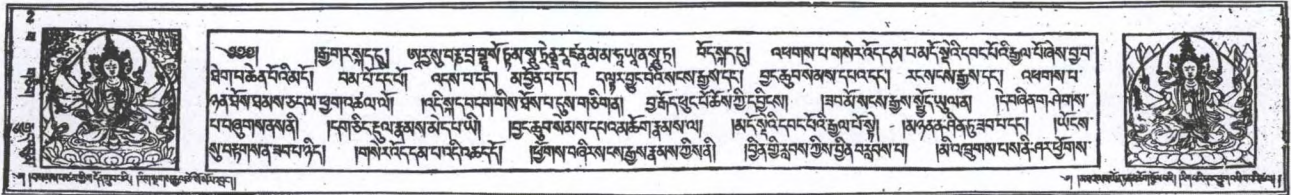 ༄༅༅། །རྒྱ་གར་སྐད་དུ། ཨཱརྱ་སུ་བརྞ་པྲ་བྷཱ་སོ་ཏྟ་མ་སཱུ་ཏྲེནྡྲ་རཱ་ཛཿནཱ་མ་མ་ཧཱ་ཡཱ་ན་སཱུ་ཏྲ། བོད་སྐད་དུ། འཕགས་པ་གསེར་འོད་དམ་པ་མདོ་སྡེའི་དབང་པོའི་རྒྱལ་པོ་ཞེས་བྱ་བ་
ཐེག་པ་ཆེན་པོའི་མདོ། བམ་པོ་དང་པོ། འདས་པ་དང་། མ་བྱོན་པ་དང་། ད་ལྟར་བྱུང་བའི་སངས་རྒྱས་དང་། བྱང་ཆུབ་སེམས་དཔའ་དང་། རང་སངས་རྒྱས་དང་། འཕགས་པ་
ཉན་ཐོས་ཐམས་ཅད་ལ་ཕྱག་འཚལ་ལོ། །འདི་སྐད་བདག་གིས་ཐོས་པ་དུས་གཅིག་ན། བྱ་རྒོད་ཕུང་པོ་ཆོས་ཀྱི་དབྱིངས། །ཟབ་མོ་སངས་རྒྱས་སྤྱོད་ཡུལ་ན། །དེ་བཞིན་གཤེགས་
པ་བཞུགས་ནས་ནི། །དག་ཅིང་རྡུལ་རྣམས་མེད་པ་ཡི། །བྱང་ཆུབ་སེམས་དཔའ་མཆོག་རྣམས་ལ། །མདོ་སྡེའི་དབང་པོའི་རྒྱལ་པོ་སྟེ། །མཉན་ན་ཤིན་ཏུ་ཟབ་པ་དང་། །ཡོངས་
སུ་བརྟགས་ན་ཟབ་པ་ཉིད། །གསེར་འོད་དམ་པ་འདི་འཆད་དོ། །ཕྱོགས་བཞིར་སངས་རྒྱས་རྣམས་ཀྱིས་ནི། །བྱིན་གྱི་རླབས་ཀྱིས་བྱིན་བརླབས་པ། །མི་འཁྲུགས་པས་ནི་ཤར་ཕྱོགས་